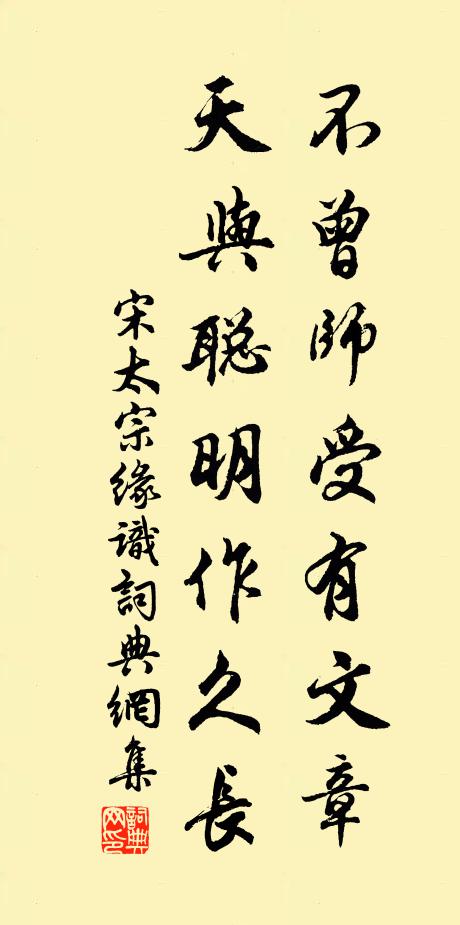 不曾師受有文章
天與聡明作久長
宋太宗緣識詞典網集
詞典網印